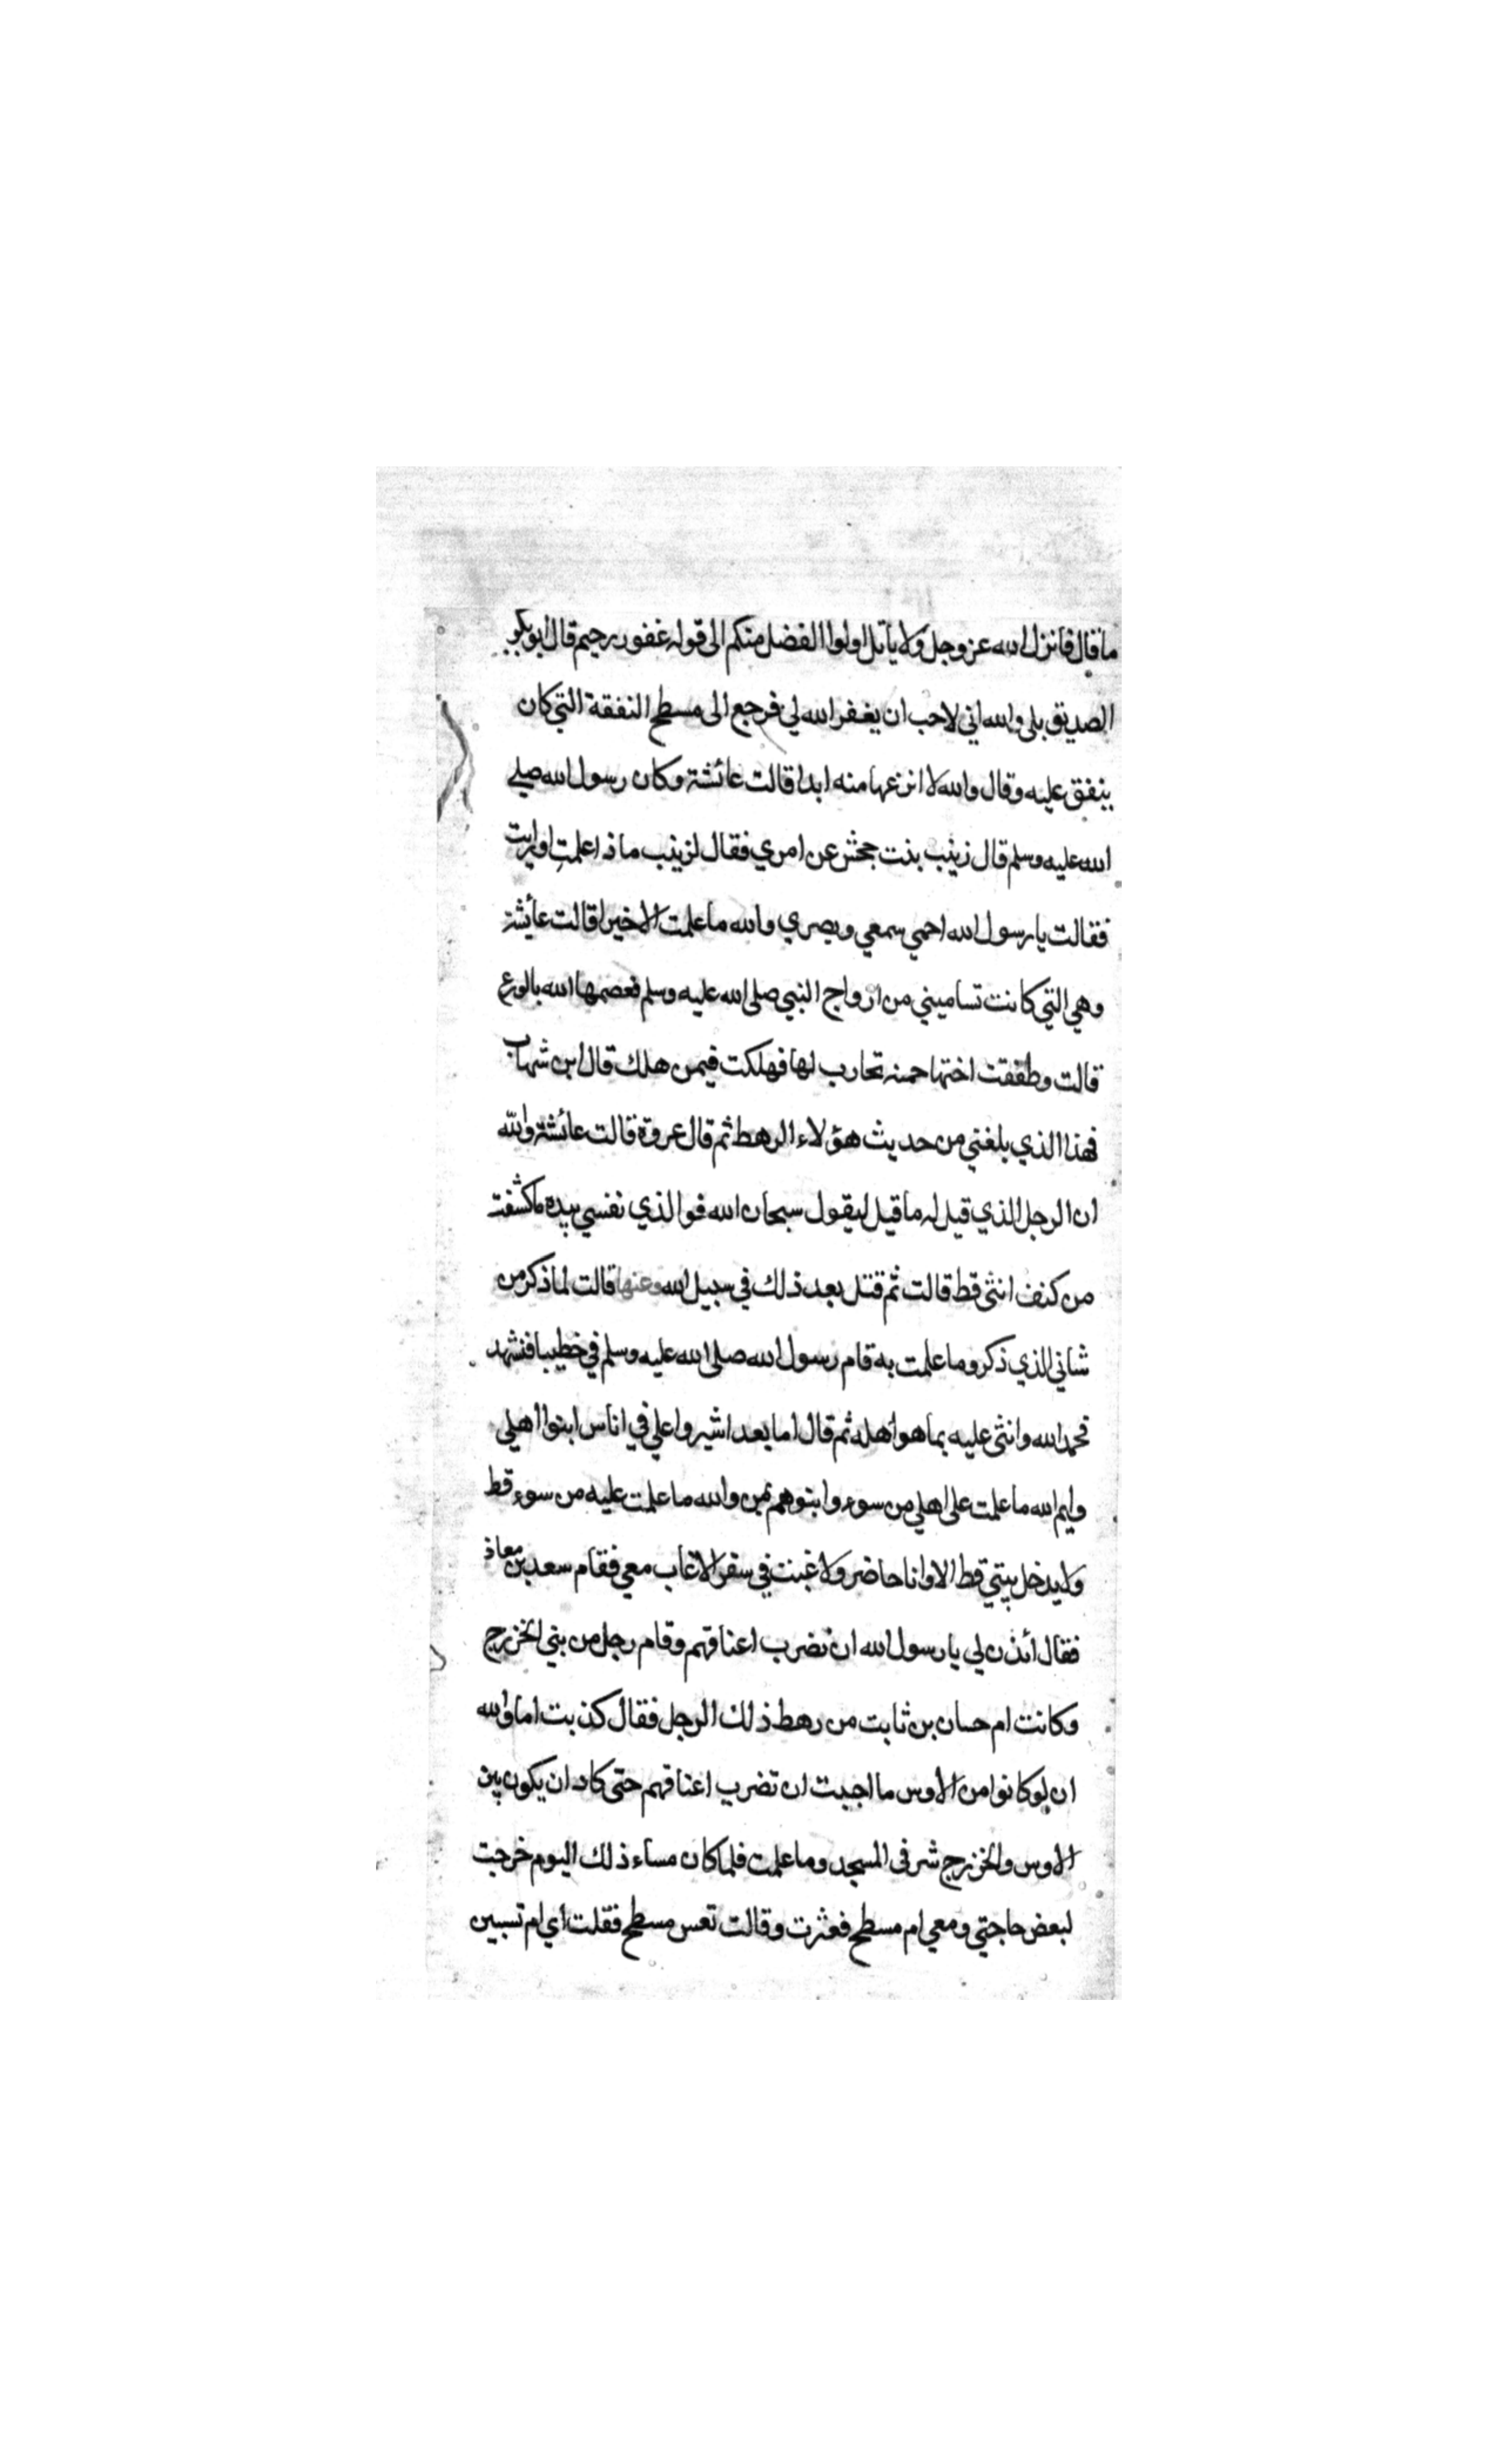 ما قال فانزل الله عز وجل ولا ياتل اولوا الفضل منكم الى قوله غفور رحيم قال ابو بكر
الصديق بلى والله اني لاحب ان يغفر الله لي فرجع الى مسطح النفقة التي كان
ينفق عليه وقال والله لا انزعها منه ابدا قالت عائشة وكان رسول الله صلى
الله عليه وسلم قال زينب بنت جحش عن امري فقال لزينب ما ذا علمتِ او رايت
فقالت يا رسول الله احمي سمعي وبصري والله ما علمت الا خيرا قالت عائشة
وهي التي كانت تساميني من ازواج النبي صلى الله عليه وسلم فعصمها الله بالورع
قالت وطفقت اختها حمنه تحارب لها فهلكت فيمن هلك قال ابن شهاب
فهذا الذي بلغني من حديث هؤلاء الرهط ثم قال عروة قالت عائشة والله
ان الرجل الذي قيل له ما قيل ليقول سبحان الله فوالذي نفسي بيده ما كشفت
من كنف انثى قط قالت ثم قتل بعد ذلك في سبيل الله وعنها قالت لما ذكر من
شاني الذي ذكر وما علمت به قام رسول الله صلى الله عليه وسلم في خطيبا فتشهد
فحمد الله وانثى عليه بما هو اهله ثم قال اما بعد اشيروا علي في اناس ابنوا اهلي
وايم الله ما علمت على اهلي من سوء وابنوهم بمن والله ما علمت عليه من سوء قط
ولا يدخل بيتي قط الا وانا حاضر ولا غبت في سفر الا غاب معي فقام سعد بن معاذ
فقال ائذن لي يا رسول الله ان نضرب اعناقهم وقام رجل من بني الخزرج
وكانت ام حسان بن ثابت من رهط ذلك الرجل فقال كذبت اما والله
ان لو كانوا من الأوس ما احببت ان تضرب اعناقهم حتى كاد ان يكون بين
الاوس والخزرج شر في المسجد وما علمت فلما كان مساء ذلك اليوم خرجت
لبعض حاجتي ومعي ام مسطح فعثرت وقالت تعس مسطح فقلت أي ام تسبين